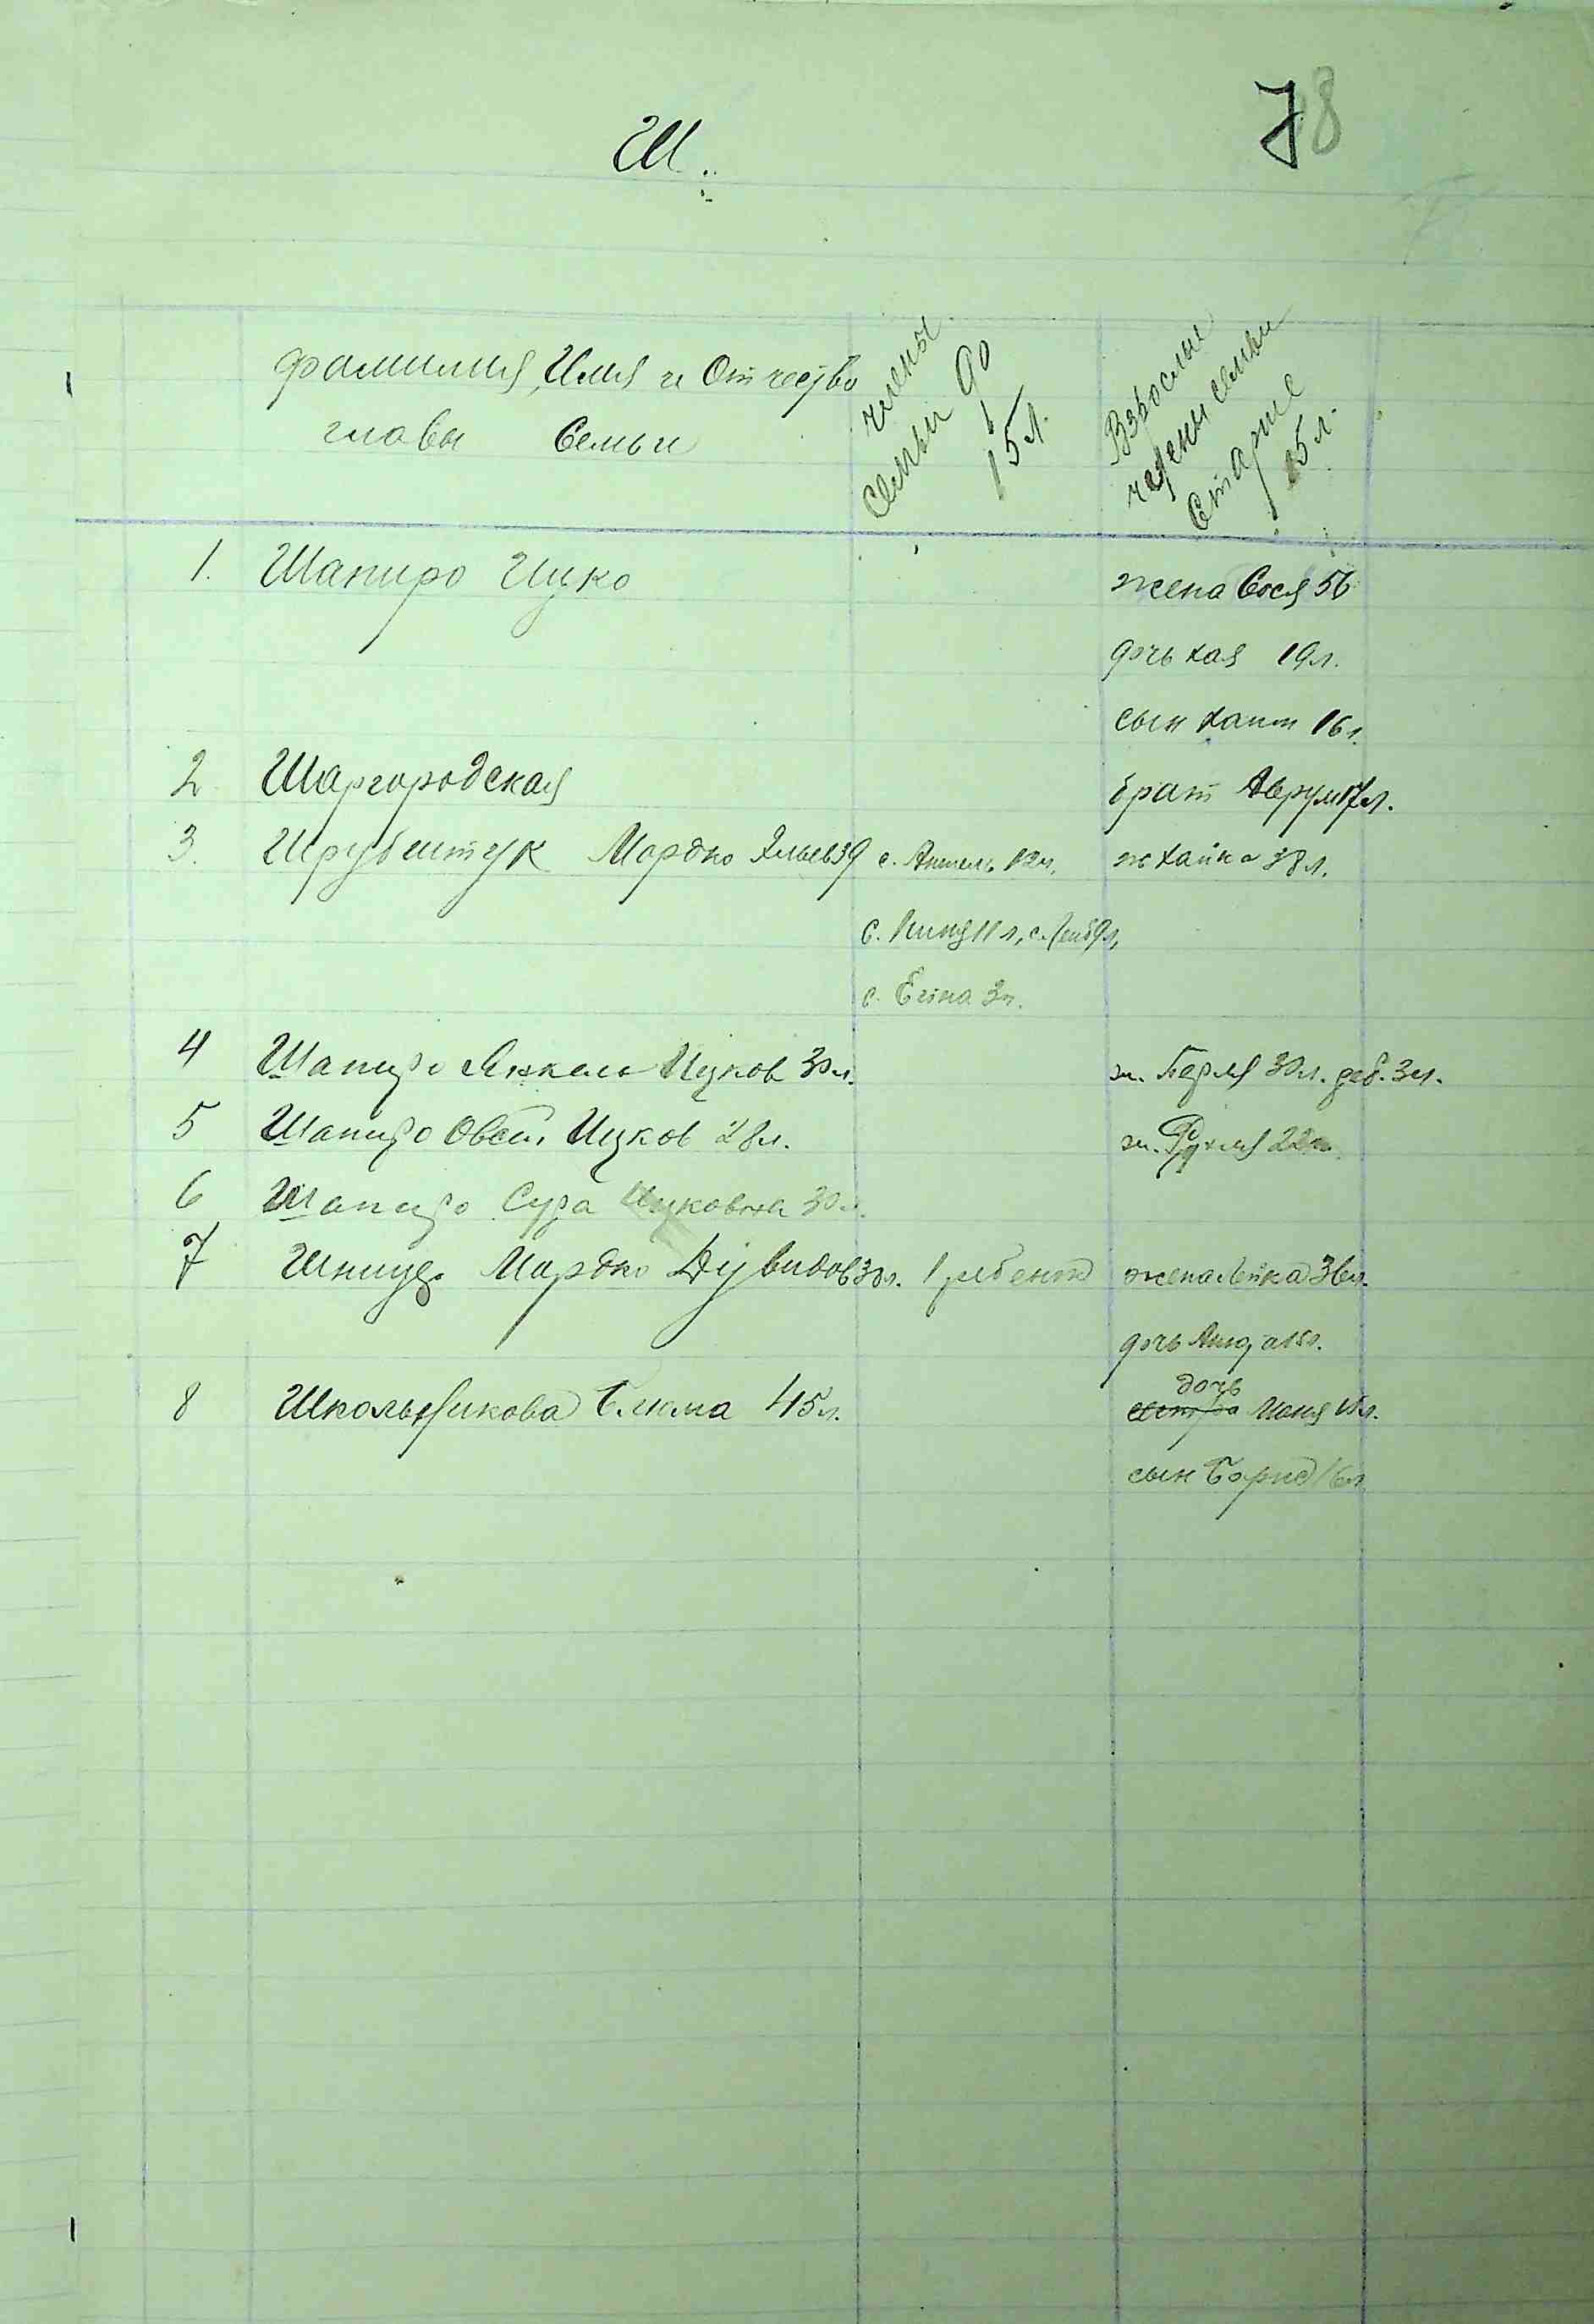 Ш.
78
Фамилия, Имя и Отчество
главы Семьи
члены
семьи до
15 л.
Взрослые
члены семьи
старше
15 л.
1. Шапиро Ицко жена Сося 56
дочь Хая 19 л.
сын Хаим 16 л.
2 Шаргородская брат Аврум 17 л.
3. Шрубштук Мордко 39 с. 12 л. ж Хайка 38 л.
с. 11 л, с. 9 л,
с. 3 л.
4 Шапиро Янкель Ицков 30 л. ж. 30 л. реб. 3 л.
5 Шапиро Овсей Ицков 28 л. ж. Рухля 22 л.
6 Шапиро Сура Ицковна 30 л.
7 Шницер Мордко Дувидов 30 л. 1 ребенок жена Лейка 36 л.
дочь 15 л.
8 Школьникова Блюма 45 л. дочь
сестра 18 л.
сын Борис 16 л.